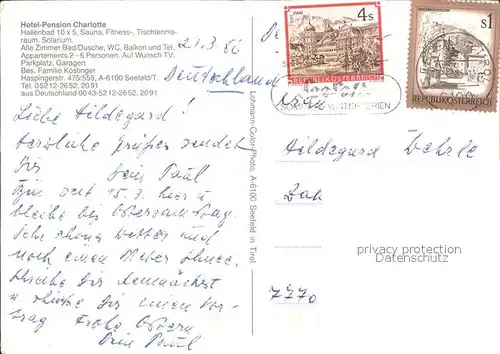 Hotel-Pension Charlotte
Hallenbad 10 x 5, Sauna, Fitness-, Tischtennis-
raum. Solarium.
Alle Zimmer Bad/Dusche, WC, Balkon und Tel.
Appartements 2-6 Personen. Auf Wunsch TV.
Parkplatz, Garagen
Bes. Familie Köstinger
Haspingerstr. 475/555, A-6100 Seefeld/T.
Tel. 05212-2652, 2091
aus Deutschland 0043-5212-2652, 2091
21.3.86
Deutschland
Liebe Hildegard!
Herzliche Grüßen sendet
Dir Dein Paul
Bin seit 15.3. hier u
bleibe bis Ostersamstag.
Sehr schönes Wetter und
noch einen Meter Schnee.
Schreibe Dir demnächst
u schicke Dir einen Vor-
trag Frohe Ostern
Dein Paul
Lohmann-Color-Photo, A-6100 Seefeld in Tirol
4 S
STIFT STAMS
REPUBLIK ÖSTERREICH
S 1
REPUBLIK ÖSTERREICH
SOMMER WINTER FERIEN
Hildegard
7770
privacy protection
Datenschutz